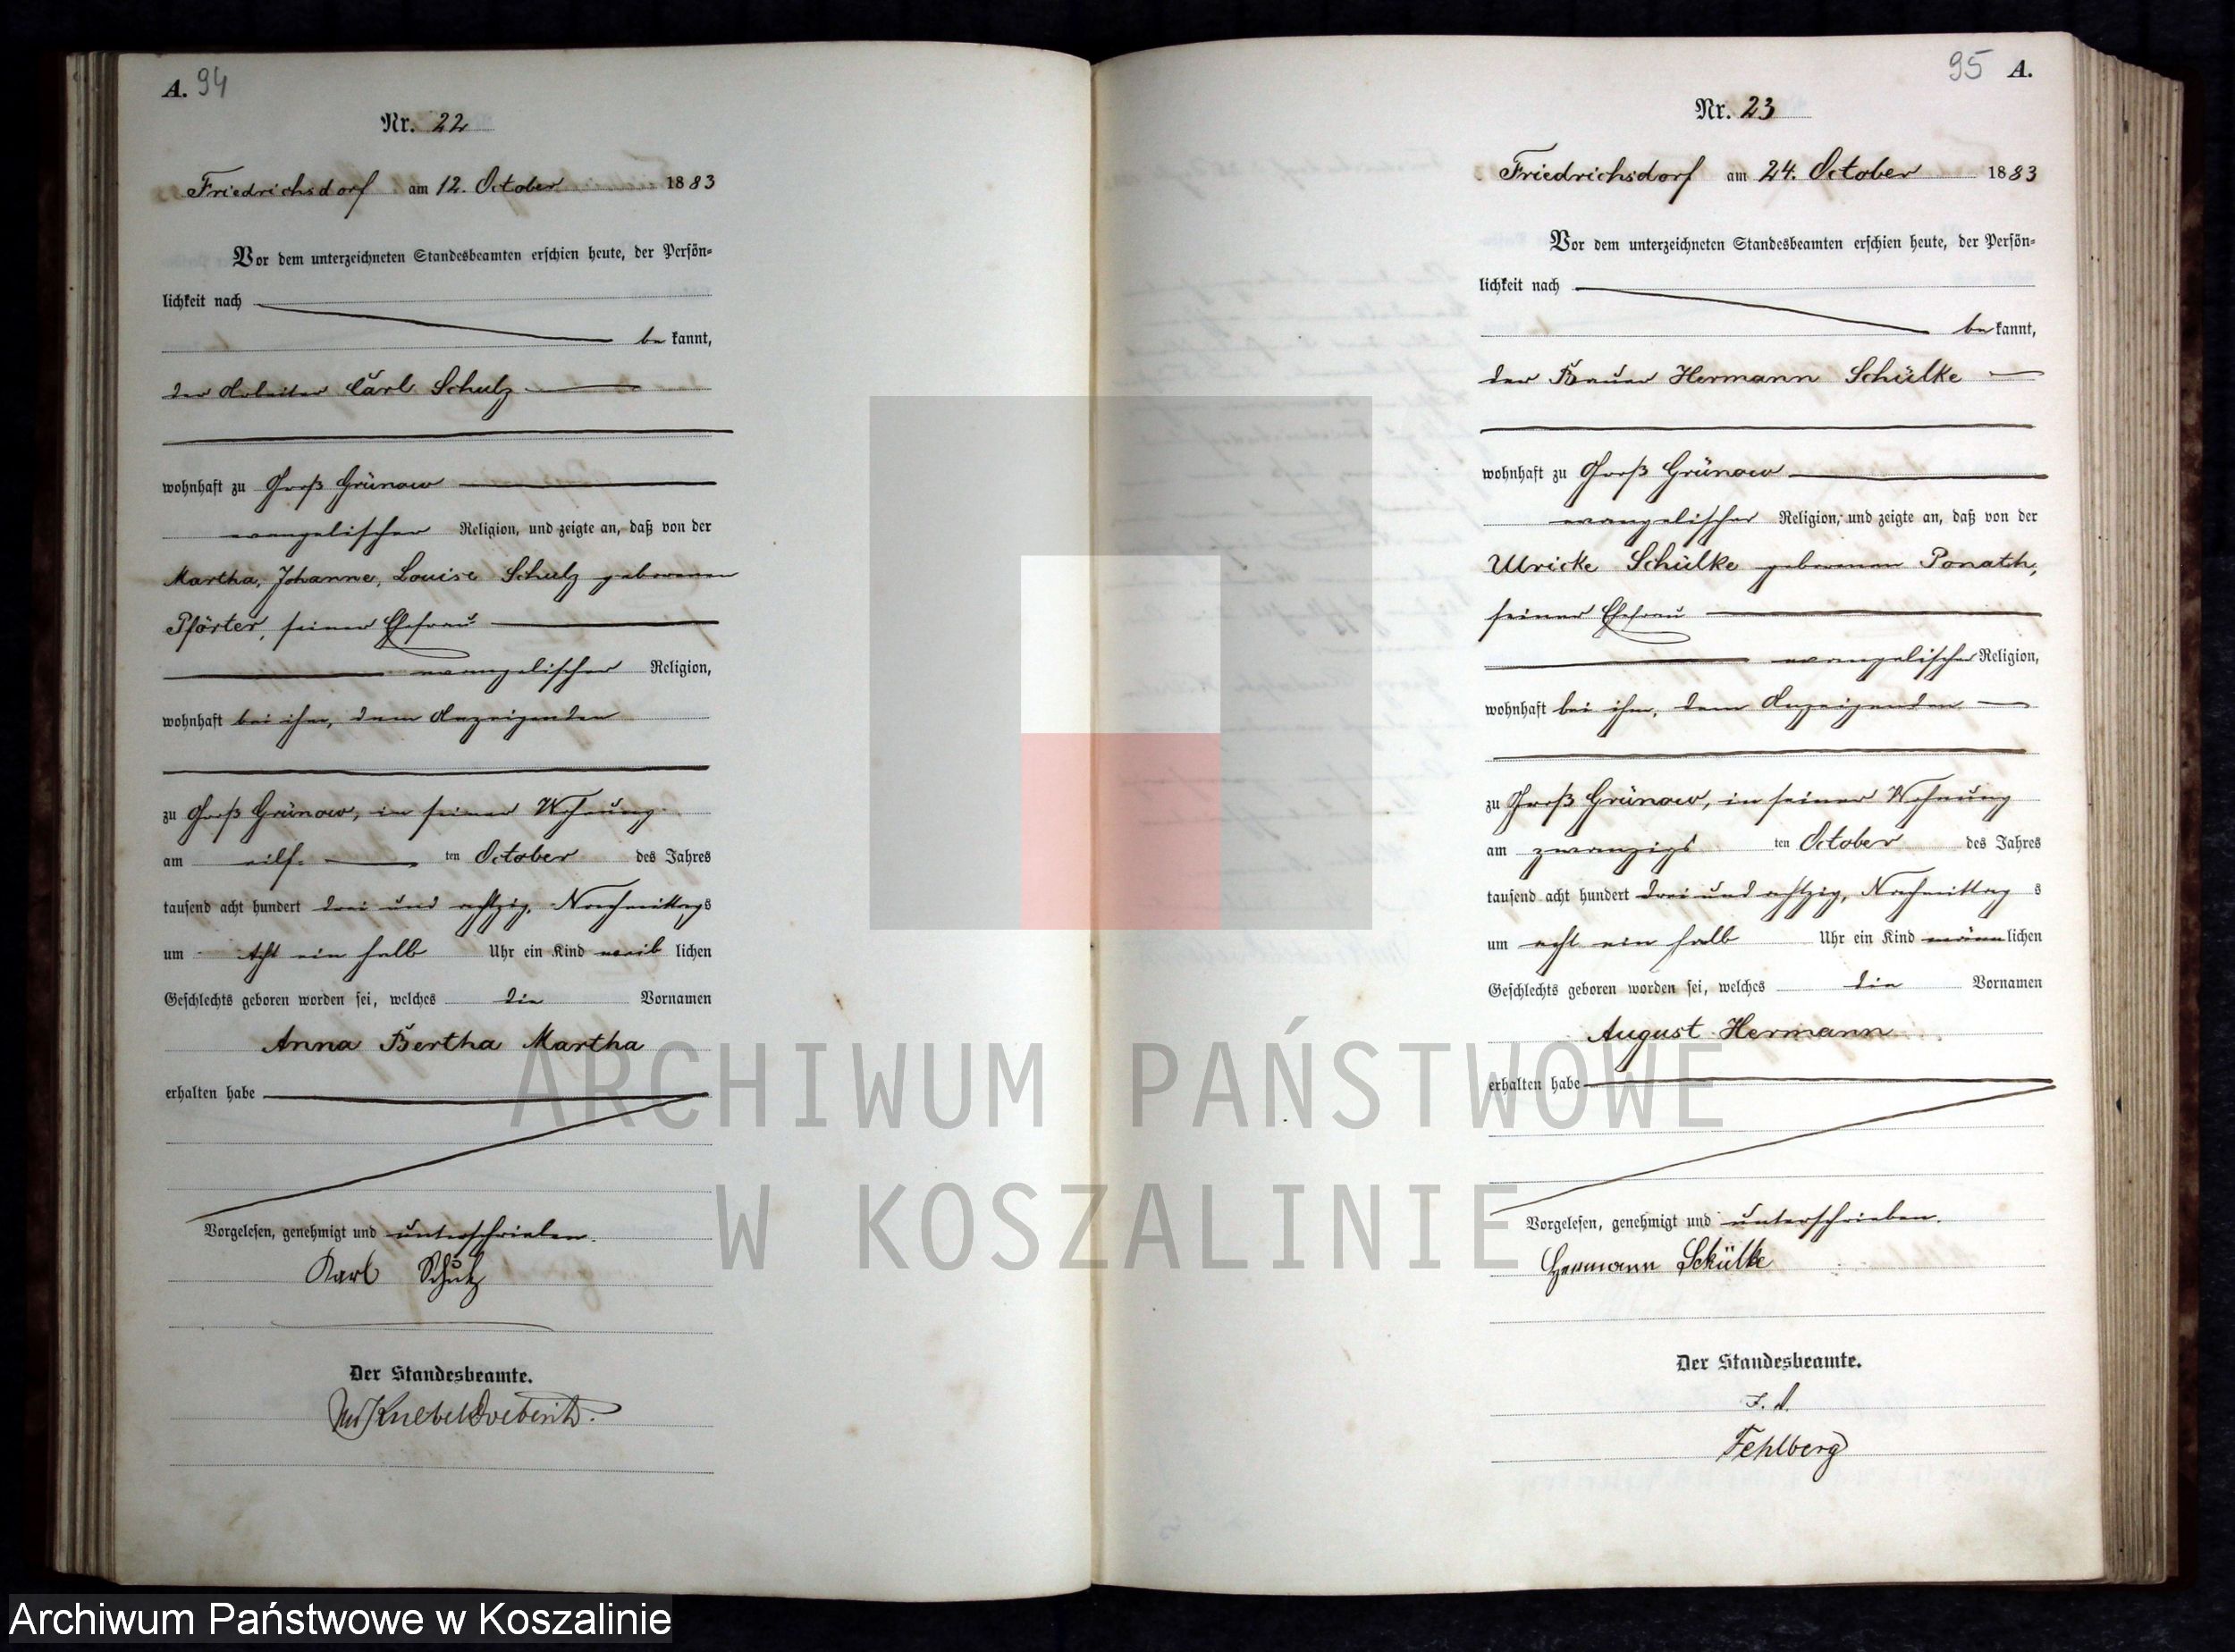 A. 94
Nr. 22
Friedrichsdorf am 12. October 1883
Vor dem unterzeichneten Standesbeamten erschien heute, der Persön-
lichkeit nach
be kannt,
der Arbeiter Carl Schulz
wohnhaft zu Groß Grünow
evangelischer Religion, und zeigte an, daß von der
Martha, Johanne, Louise Schulz geborenen
Pförter, seiner Ehefrau
evangelischer Religion,
wohnhaft bei ihm, dem Anzeigenden
zu Groß Grünow, in seiner Wohnung
am eilf ten October des Jahres
tausend acht hundert drei und achtzig, Nachmittags
um Acht ein halb Uhr ein Kind weib lichen
Geschlechts geboren worden sei, welches die Vornamen
Anna Bertha Martha
erhalten habe
Vorgelesen, genehmigt und unterschrieben.
Karl Schulz
Der Standesbeamte.
95 A.
Nr. 23
Friedrichsdorf am 24. October 1883
Vor dem unterzeichneten Standesbeamten erschien heute, der Persön-
lichkeit nach
be kannt,
der Bauer Hermann Schülke
wohnhaft zu Groß Grünow
evangelischer Religion, und zeigte an, daß von der
Ulricke Schülke geborenen Ponath,
seiner Ehefrau
evangelischer Religion,
wohnhaft bei ihm, dem Anzeigenden
zu Groß Grünow, in seiner Wohnung
am zwanzigs ten October des Jahres
tausend acht hundert drei und achtzig, Nachmittag s
um acht ein halb Uhr ein Kind männ lichen
Geschlechts geboren worden sei, welches die Vornamen
August Hermann
erhalten habe
Vorgelesen, genehmigt und unterschrieben.
Hermann Schülke
Der Standesbeamte.
Fehlberg
ARCHIWUM PAŃSTWOWE
W KOSZALINIE
Archiwum Państwowe w Koszalinie